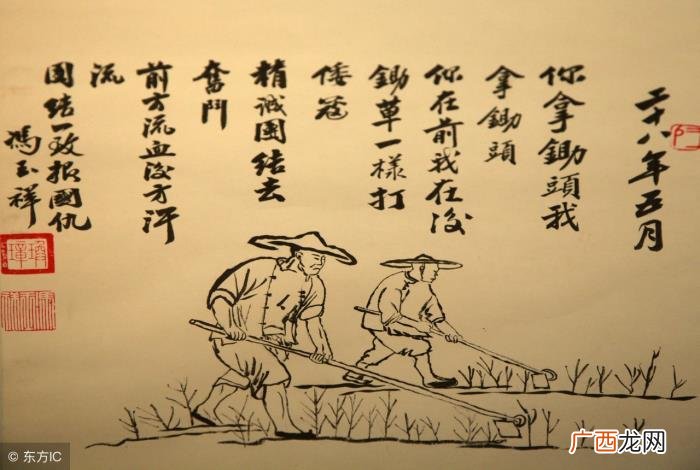 二十八年五月
你拿鋤頭我
拿鋤頭
你在前我在後
鋤草一樣打
倭寇
精誠團結去
奮鬥
前方流血後方汗
流
團結一致報國仇
馮玉祥
© 东方IC
广西龙网